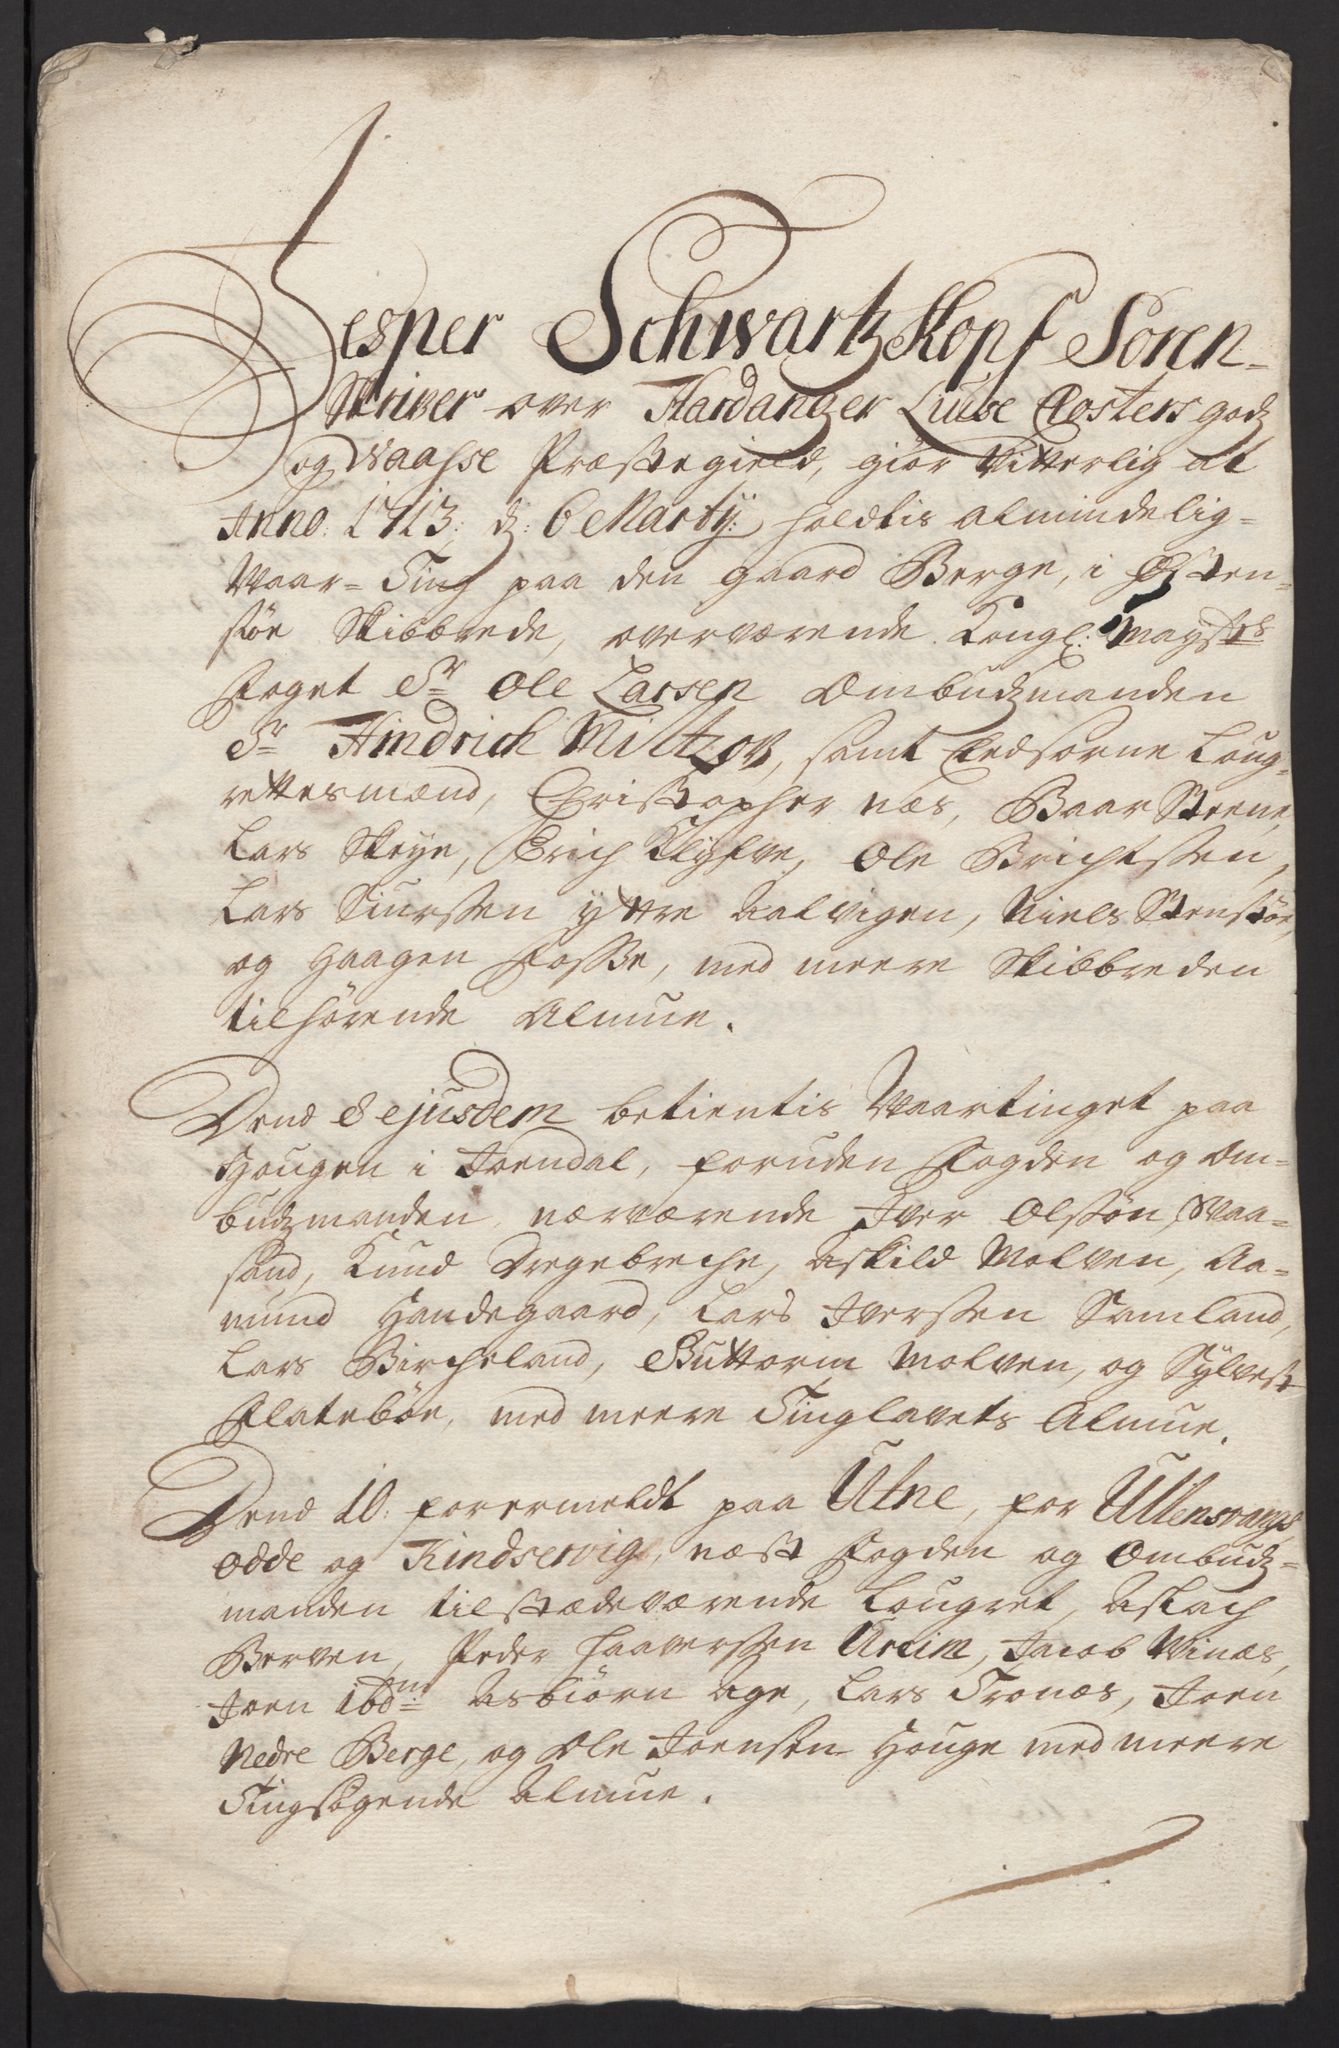 Jesper Schwartz Kopf Soren-
Skriver over Hardanger Lüüse Closters godz
og Waasse Præstegield, giör Vitterlig at
Anno: 1713: d: 6 Marty: holdtis almindelig-
Waar-Ting paa den gaard Berge, i Østen-
söe Skibbrede, overværende Kongl: Mayts
Foget Sr Ole Larsen Ombudzmanden
Sr Hindrich Miltzow, samt Eedsorne Laug-
rettesmænd, Christopher Næs, Baar Steene,
Lars Skeye, Erich Klyfve, Ole Brichtssen,
Lars Siurssen yttre Aalvigen, Niels Stenstöe,
og Haagen Fosse, med meere Skibbreden
tilhörende Almue.
Dend 8 ejusdem betientis Waartinget paa
Hougen i Joendal, foruden Fogden og Om-
budzmanden nærværende Iver Olsön Svaa-
sand, Knud Dregebreche, Askild Molven, Aa-
mund Handegaard, Lars Iverssen Samland,
Lars Bircheland, Guttorm Molven, og Sÿlvest
Flateböe, med meere Tinglavets Almue.
Dend 10: forermeldt paa Utne, for Ullensvangs
Odde og Kindservig, næst Fogden og Ombudz-
manden tilstædeværende Laugret, Aslach
Berven, Peder Haaverssen Ureim, Jacob Winæs,
Joen ibdm Asbiörn Age, Lars Tronæs, Joen
Nedre Berge, og Ole Joensen Houge med meere
Tingsögende Almue.